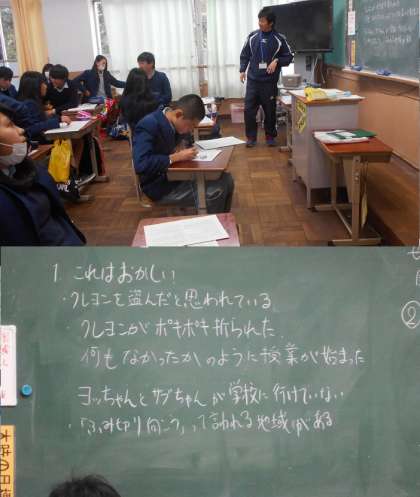 1. これはおかしい
・クレヨンを盗んだと思われている
・クレヨンがポキポキ折られた
何もなかったかのように授業が始まった
ヨッちゃんとサブちゃんが学校に行けていない
・「ふみ切り向こう」って言われる地域がある
②